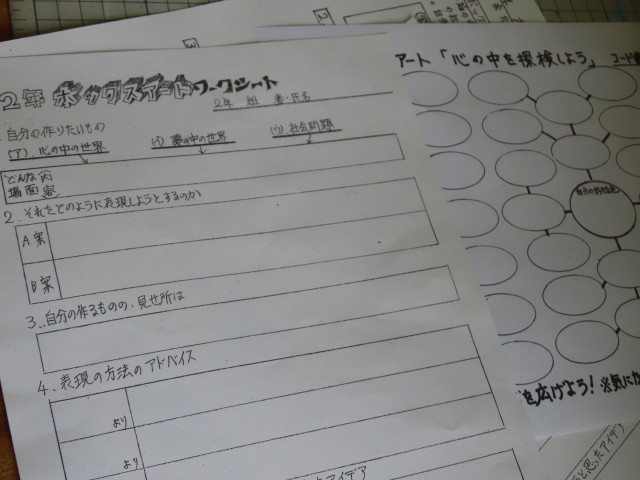 2年 ボックスアートワークシート
2年 組 番・氏名
自分の作りたいもの
(ア) 心の中の世界 (イ) 夢の中の世界 (ウ) 社会問題
どんな内
場面案
2. それをどのように表現しようとするのか
A案
B案
3. 自分の作るものの、見せ所は
4. 表現の方法のアドバイス
より
より
アイデア
アート「心の中を探検しよう」
を広げよう!
と思ったアイデア